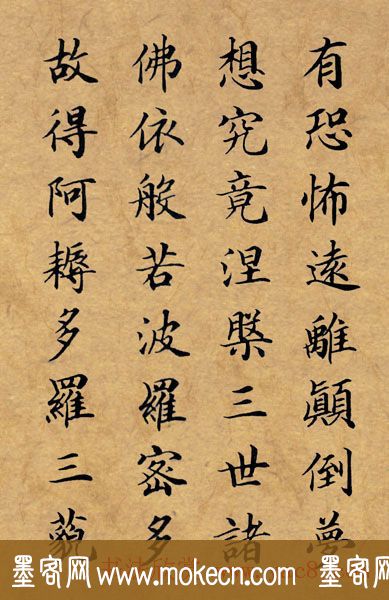 有恐怖遠離顛倒夢
想究竟涅槃三世諸
佛依般若波羅密多
故得阿耨多羅三藐
墨客网www.mokecn.com墨客网